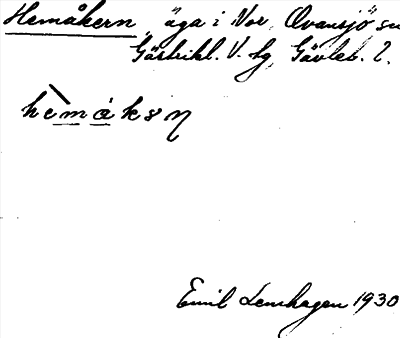 Hemåkern äga i Nor, Ovansjö sn
Gästrikl. V. hg, Gävleb. l.
hèmåkəɳ
Emil Lenhagen 1930